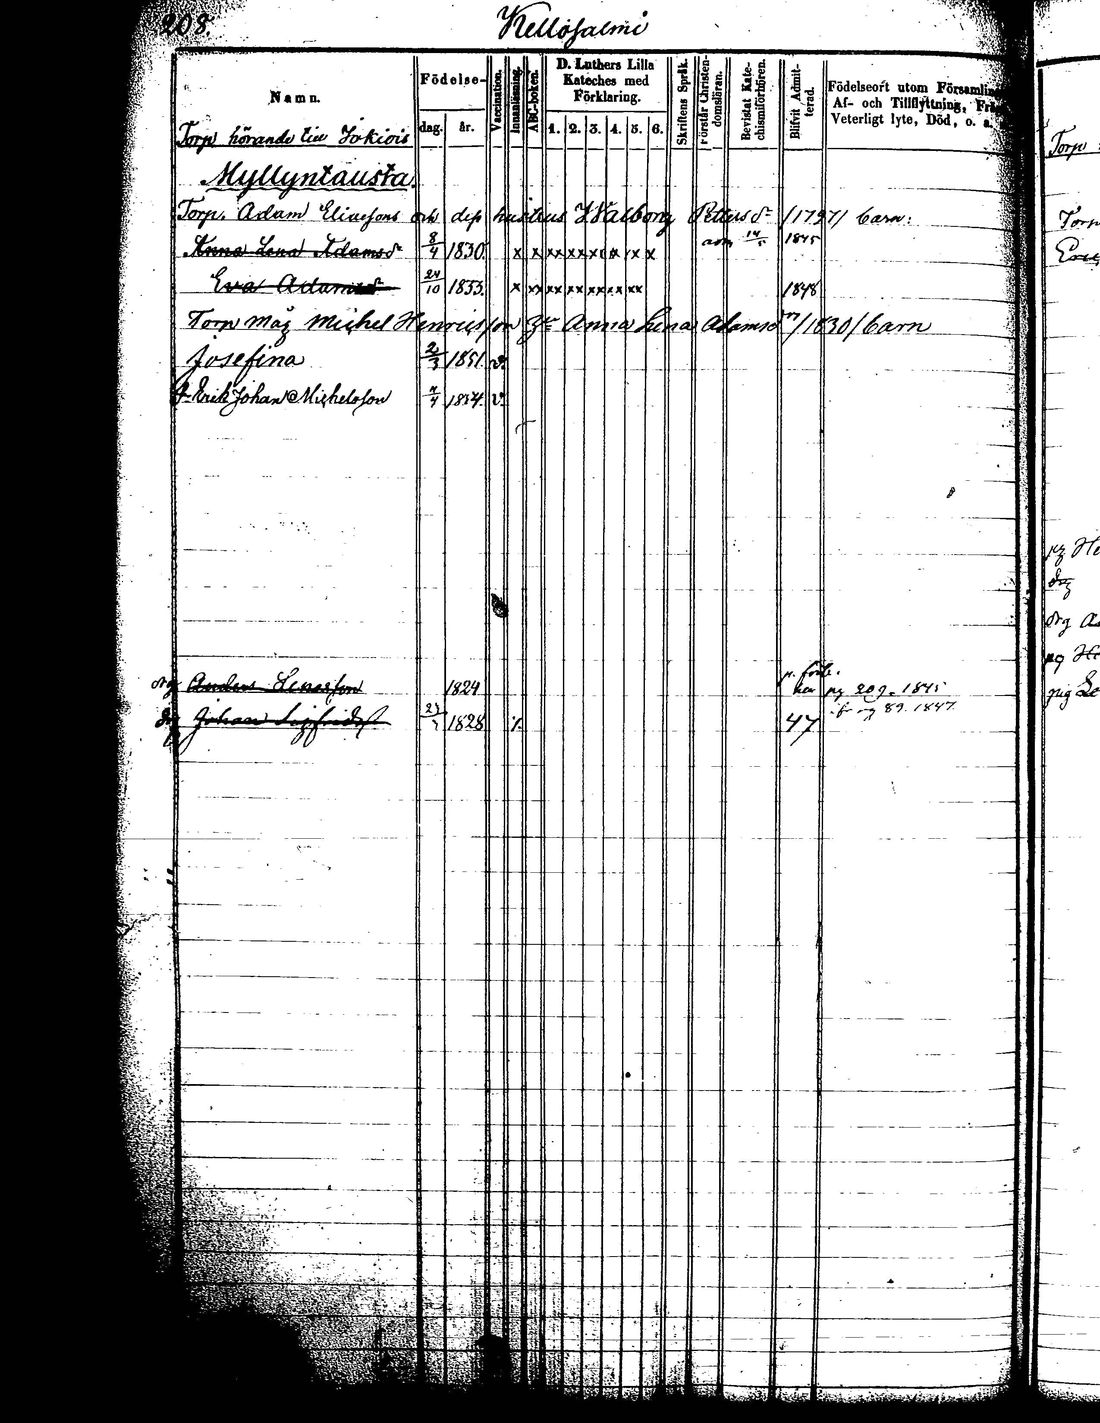 208.
Kellosalmi
Namn.
Födelse-
dag.
år.
Vaccination.
Innanläsning.
ABC-boken.
D. Luthers Lilla
Kateches med
Förklaring.
1. 2. 3. 4. 5. 6.
Skriftens Språk.
Förstår Christen-
domsläran.
Bevistat Kate-
chismiförhören.
Blifvit Admit-
terad.
Födelseort utom Församling
Af- och Tillflyttning, Frä
Veterligt lyte, Död, o. a.
Torp hörande till Jokiois
Myllyntausta.
Torp. Adam Eliæsons och dess hustrus Walborg Petters dr /1797/ barn:
Anna Lena Adamsdr 8/4 1830. x x xx xx xx x x x 14/5 1845
Eva Adamsdr 24/10 1833. x xx xx xx xx xx xx 1848
Torp Måg Michel Henricsson Anna Lena Adamsdr /1830/ barn
Josefina 2/3 1851. v.
Erik Johan Michelsson 7/4 1854. v.
drg Anders 1824
pg 209. 1845
drg Johan Sigfridss 1828 47
pg 89. 1847
Torp
Torp
pg He
drg
drg
pg
pig Le